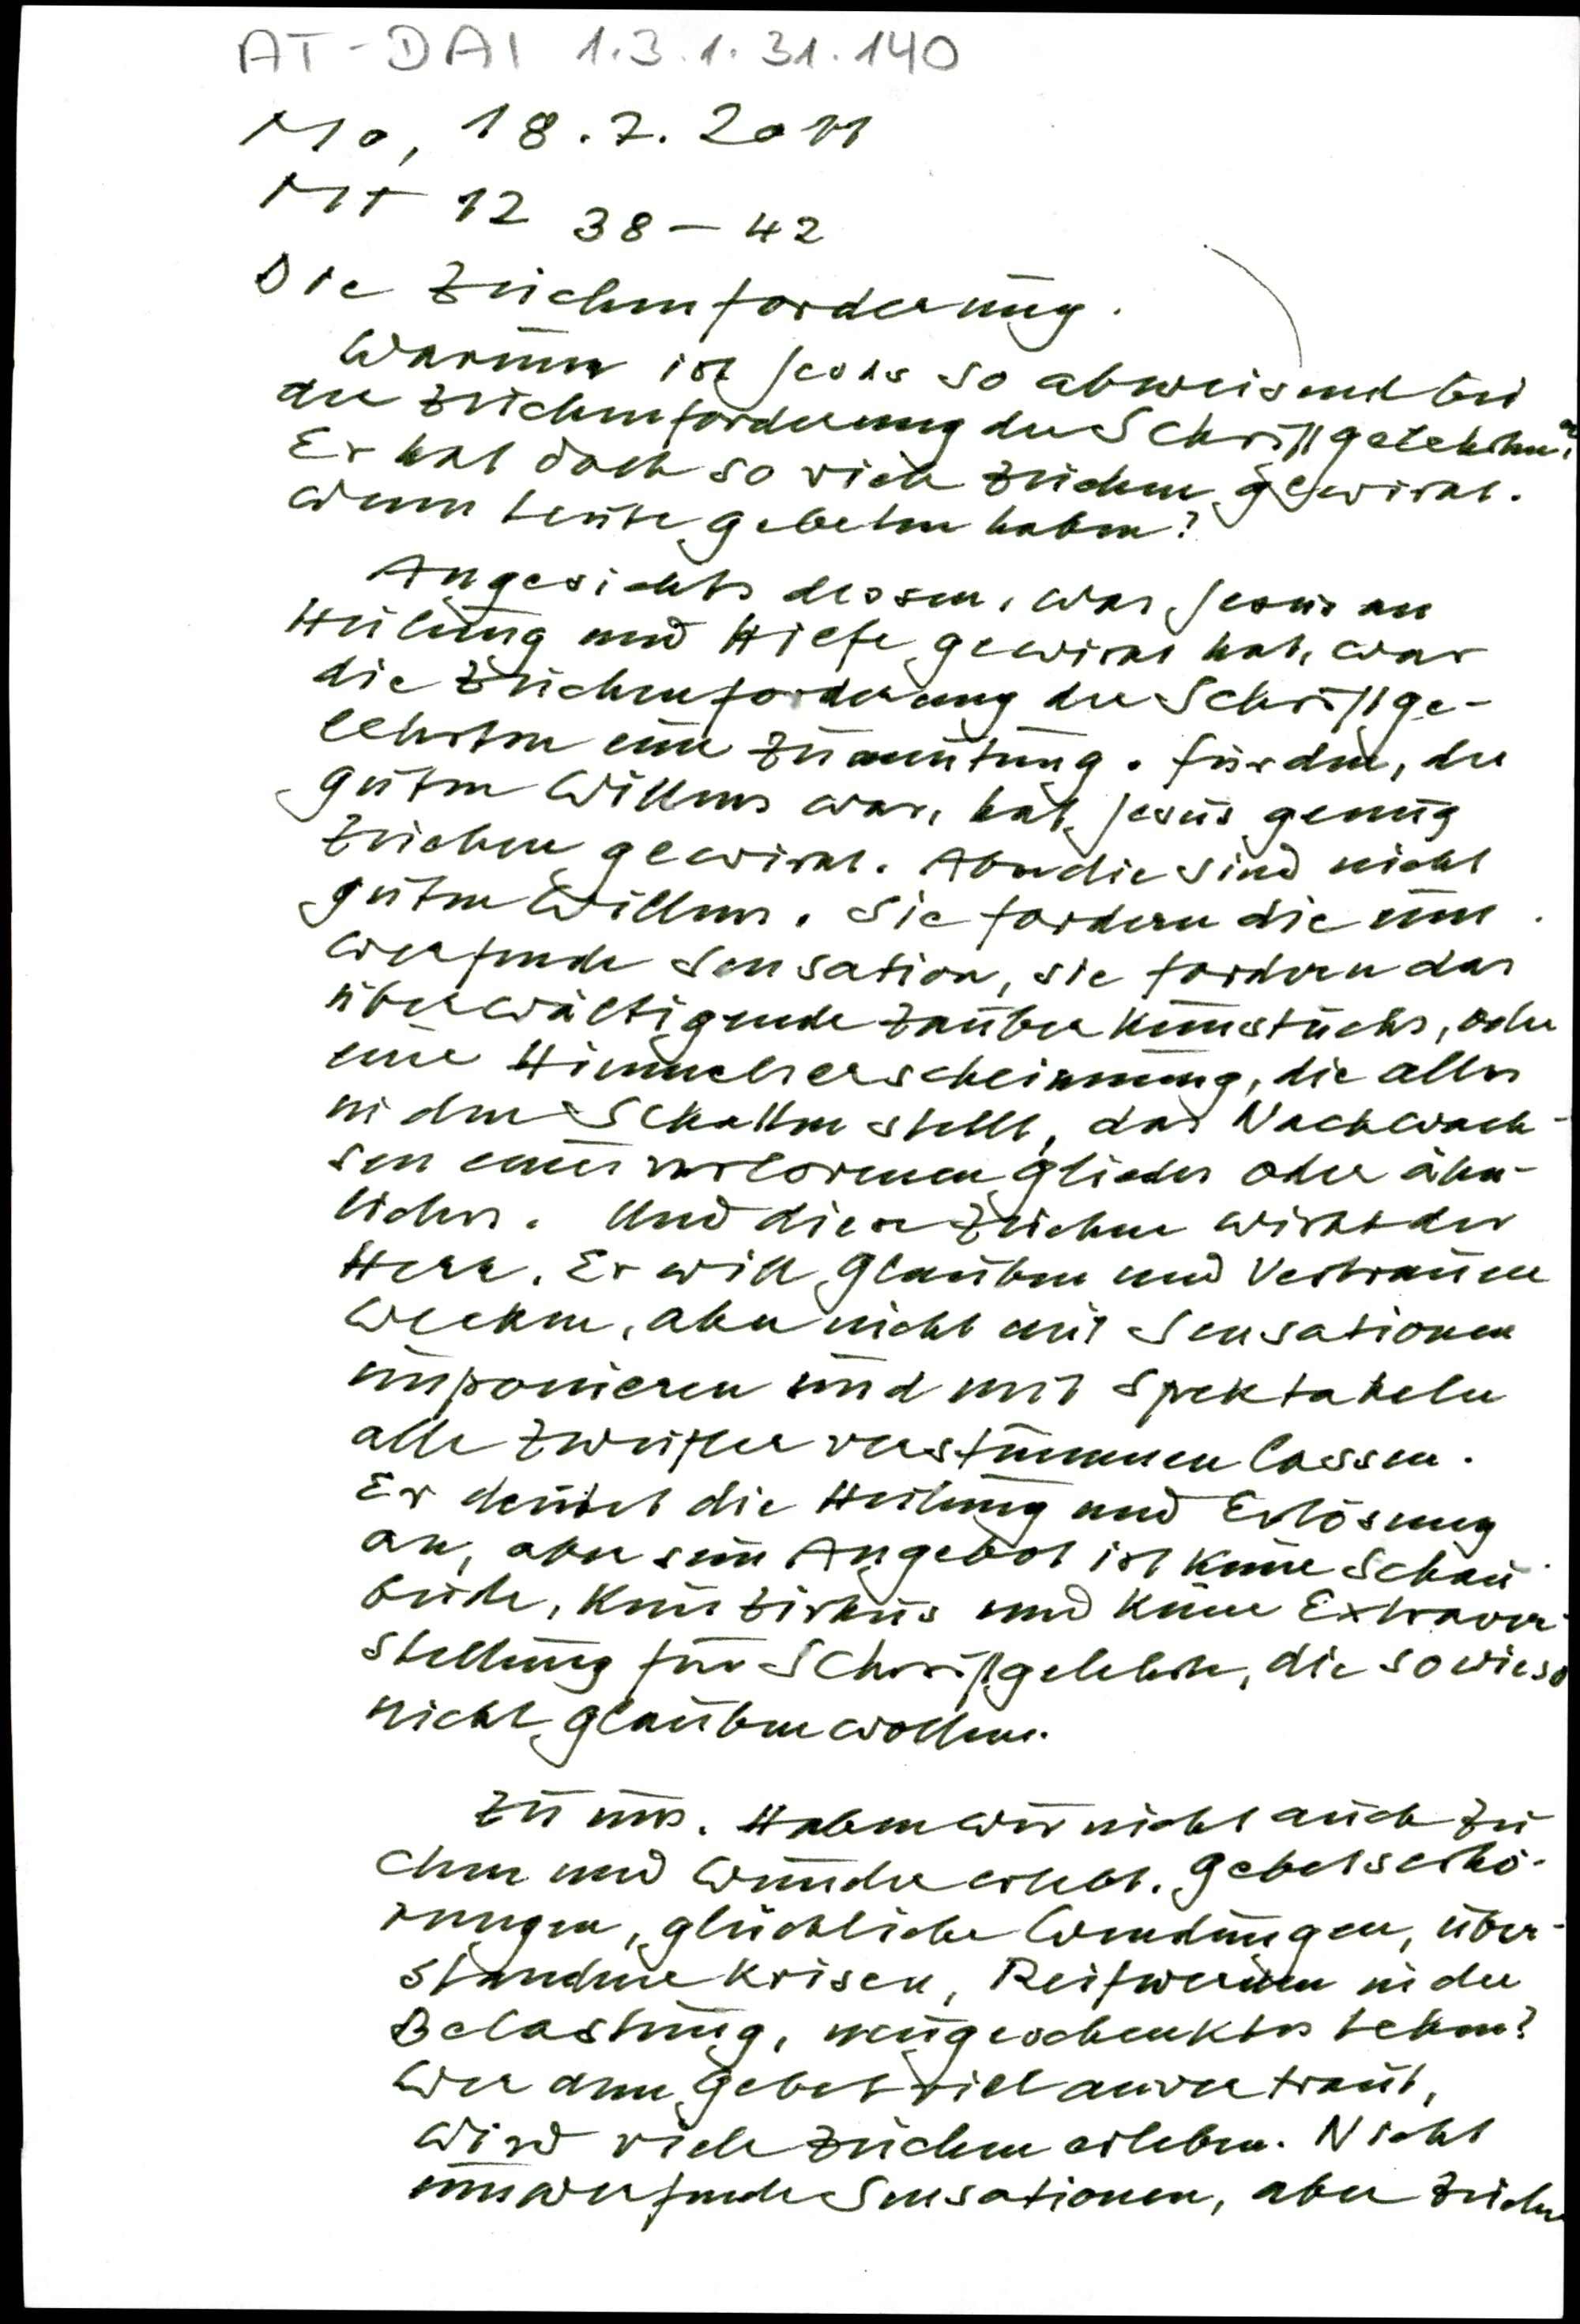 AT-DAI 1.3.1.31.140
Mo, 18.7.2011
MT 12 38-42
Die Zeichenforderung.
Warum ist Jesus so abweisend bei
der Zeichenforderung der Schriftgelehrten?
Er hat doch so viele Zeichen gewirkt.
Wenn Leute gebeten haben?
Angesichts dessen, was Jesus an
Heilung und Hilfe gewirkt hat, war
die Zeichenforderung der Schriftge-
lehrten eine Zumutung. Für den, der
guten Willens war, hat Jesus genug
Zeichen gewirkt. Aber die sind nicht
guten Willens. Sie fordern die um
werfende Sensation, sie fordern das
überwältigende Zauberkunststück, oder
eine Himmelserscheinung, die alles
in den Schatten stellt, das Nachwach-
sen eines verlorenen Gliedes oder ähn-
liches. Und diese Zeichen wirkt der
Herr. Er will Glauben und Vertrauen
wecken, aber nicht mit Sensationen
imponieren und mit Spektakeln
alle Zweifler verstummen lassen.
Er deutet die Heilung und Erlösung
an, aber sein Angebot ist keine Schau
bude, kein Zirkus und keine Extravor-
stellung für Schriftgelehrte, die sowieso
nicht glauben wollen.
Zu uns. Haben wir nicht auch Zei
chen und Wunder erlebt. Gebetserhö-
rungen, glückliche Wendungen, über-
standene Krisen, Reifwerden in der
Belastung, neugeschenktes Leben?
Wer dem Gebet viel anvertraut,
wird viele Zeichen erleben. Nicht
umwerfende Sensationen, aber Zeichen